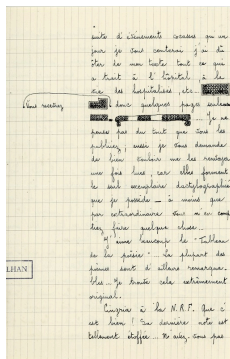 suite d'événements cocasses qu'un
jour je vous conterai j'ai dû
ôter de mon texte tout ce que
a trait à l'hôpital, à la
vie des hospitalisés, etc..
Vous recevrez
donc quelques pages seulement
Je ne
pense pas du tout que vous les
publiiez, aussi je vous demande
de bien vouloir me les renvoyer
une fois lues, car elles forment
le seul exemplaire dactylographié
que je possède — à moins que
par extraordinaire vous ne en comp
tiez faire quelque chose...
J'aime beaucoup le "Tableau
de la poésie". La plupart des
poèmes sont d'ailleurs remarqua-
bles... Je trouve cela extrêmement
original.
LHAN
Cingria à la N.R.F. Que c'
est bien! Sa dernière note est
tellement étoffée. N'allez-vous pas